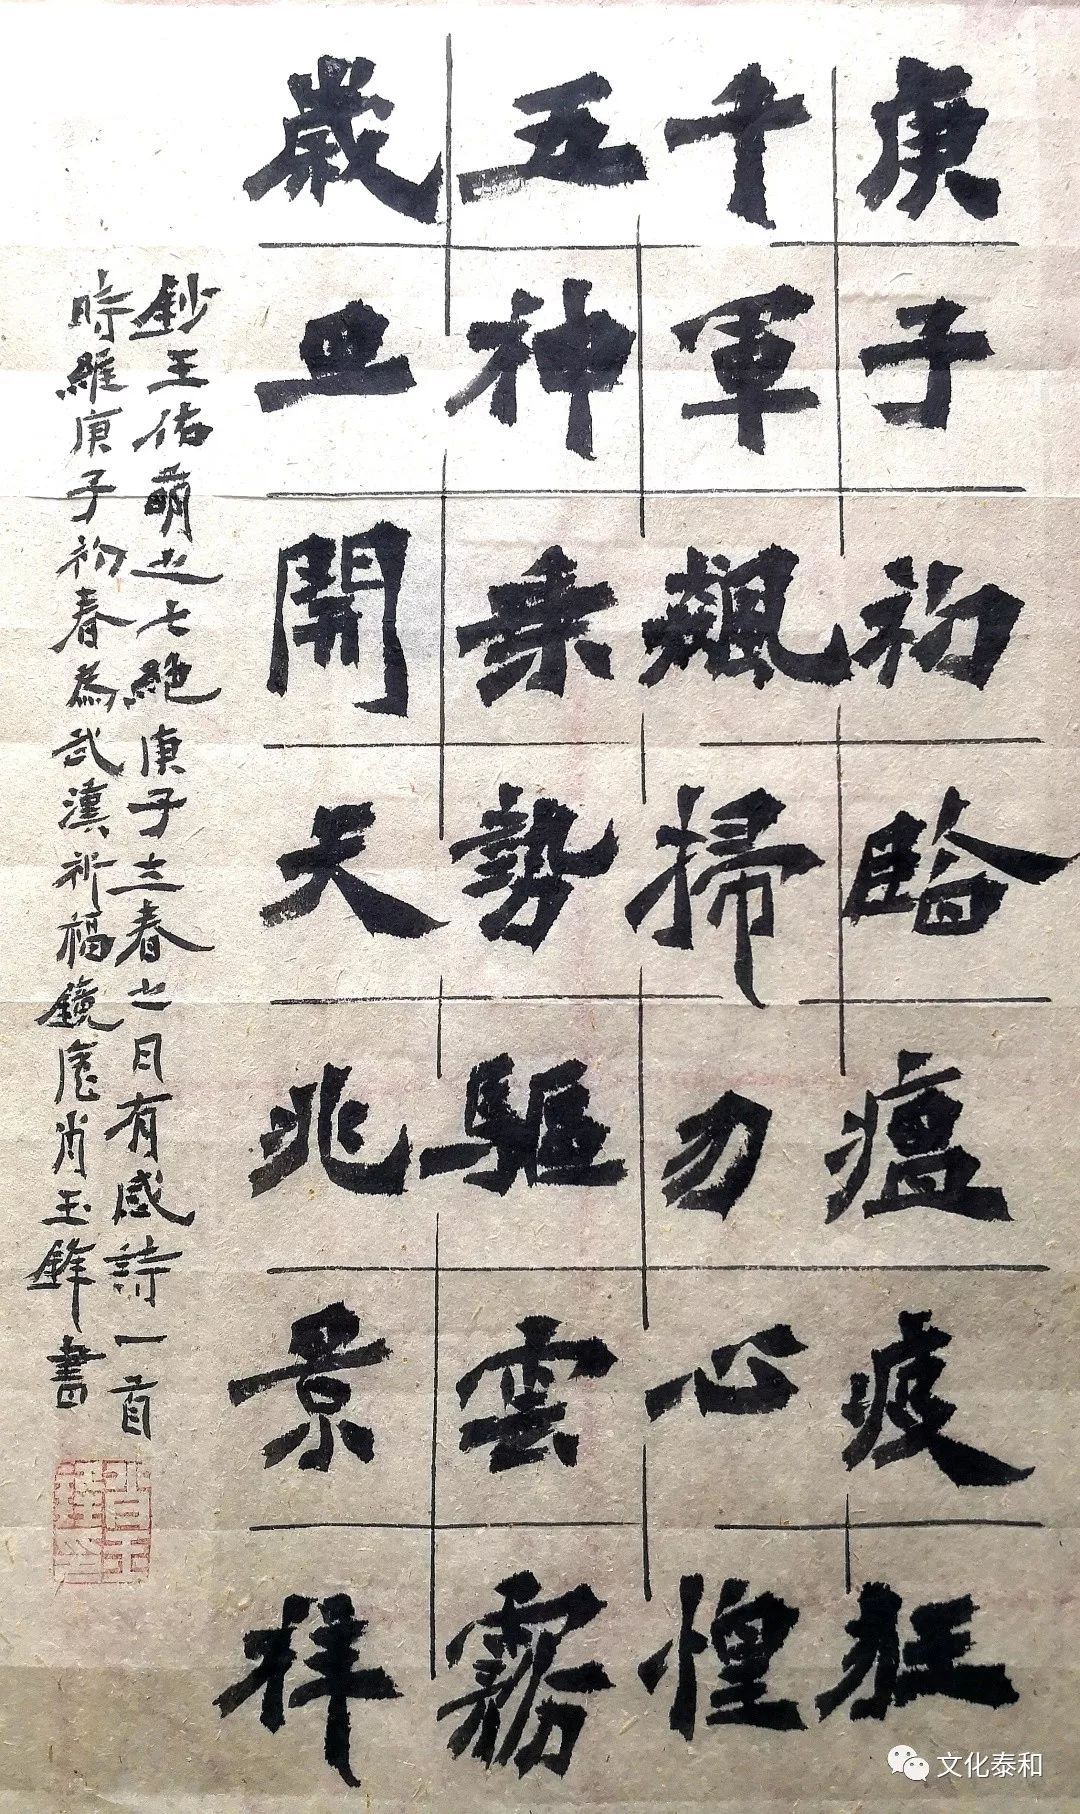 庚子初臨瘟疫狂
千軍飆掃勿心惶
五神乘勢驅雲霧
歲丑開天兆景祥
鈔王佑萌之七絕庚子立春之日有感詩一首
時維庚子初春為武漢祈福鏡庵肖玉鋒書
文化泰和